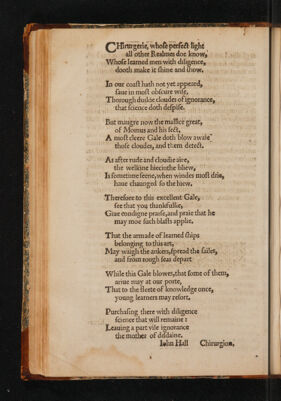 CHirurgerie, whose perfect light
all other Realmes doe know,
Whose learned men with diligence,
dooth make it shine and show.
In our coast hath not yet appeared,
saue in most obscure wise,
Thorough duskie cloudes of ignorance,
that science doth despise.
But maugre now the malice great,
of Momus and his sect,
A most cleere Gale doth blow awaie
those cloudes, and them detect.
As after rude and cloudie aire,
the welkine hieci the bliew,
Is sometime seene, when windes most drie,
haue chaunged so the hiew.
Therefore to this excellent Gale,
see that you thankfull be,
Giue condigne praise, and praie that he
may moe such blasts applie.
That the armade of learned ships
belonging to this art,
May waigh the ankers, spread the sailes,
and from rough seas depart
While this Gale blowes, that some of them,
ariue may at our porte,
That to the fleete of knowledge once,
young learners may resort.
Purchasing there with diligence
science that will remaine:
Leauing a part vile ignorance
the mother of disdaine.
Iohn Hall Chirurgion.